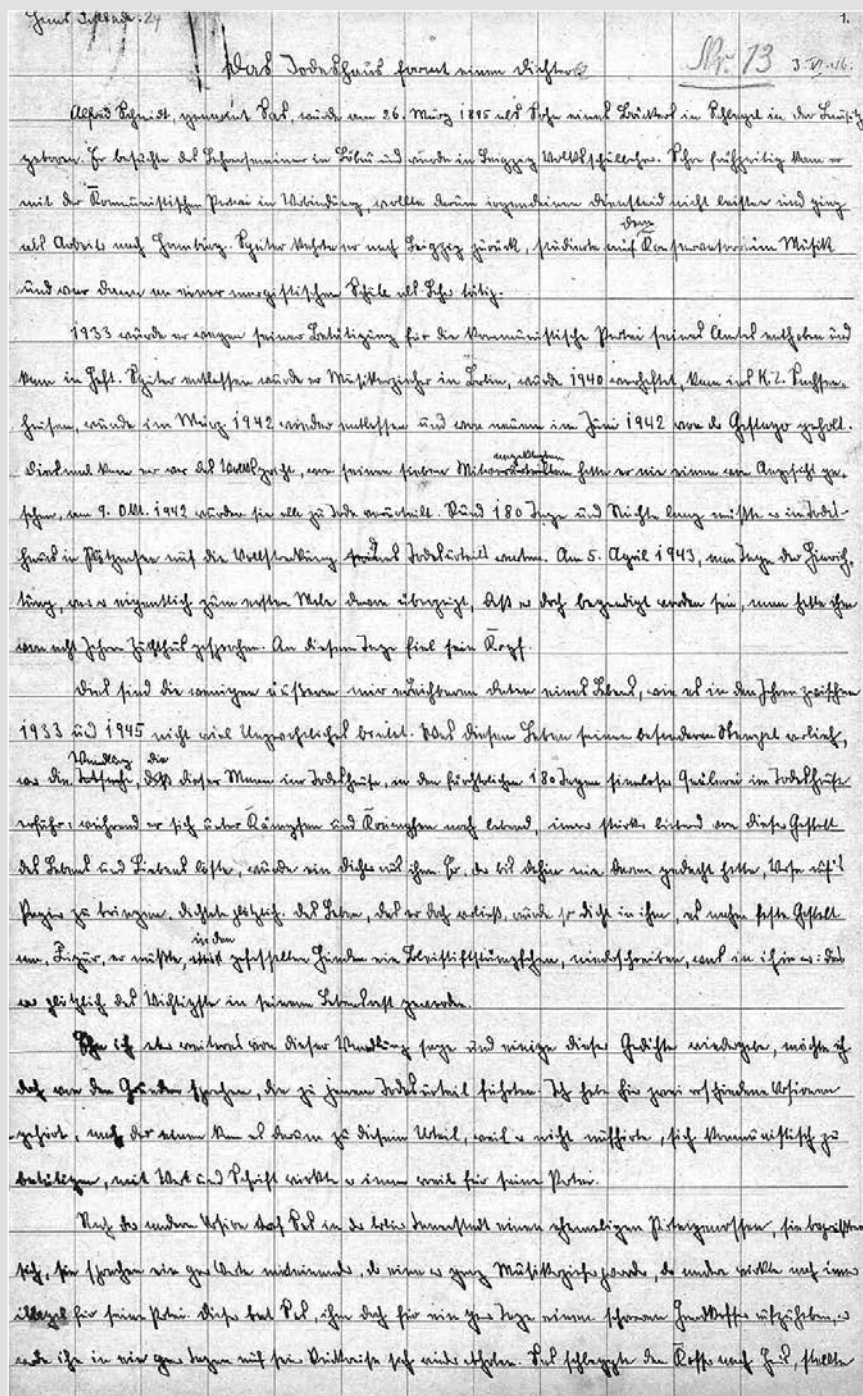 Hans Fallada. 24
1.
Das Todeshaus formt einen Dichter
Nr. 13
3. VI. 46.
Alfred Schmidt, genannt Sas, wurde am 26. März 1895 als Sohn eines Bäckers in Schlegel in der Lausitz
geboren. Er besuchte das Lehrerseminar in Löbau und wurde in Leipzig Volksschullehrer. Schon frühzeitig kam er
mit der Kommunistischen Partei in Verbindung, wollte darum irgendeinen Diensteid nicht leisten und ging
als Arbeiter nach Hamburg. Später kehrte er nach Leipzig zurück, studierte auf dem Konservatorium Musik
und war dann an einer marxistischen Schule als Lehrer tätig.
1933 wurde er wegen seiner Betätigung für die kommunistische Partei seines Amtes enthoben und
kam in Haft. Später entlassen wurde er Musikerzieher in Berlin, wurde 1940 verhaftet, kam ins K.Z. Sachsen-
hausen, wurde im März 1942 wieder entlassen und von neuem im Juni 1942 von der Gestapo geholt.
Diesmal kam er vor das Volksgericht, von seinen sieben Mitangeklagten hatte er nie einen von Angesicht ge-
sehen, am 9. Okt. 1942 wurden sie alle zu Tode verurteilt. Rund 180 Tage und Nächte lang mußte er im Todes-
haus in Plötzensee auf die Vollstreckung des Todesurteils warten. Am 5. April 1943, am Tage der Hinrich-
tung, war er eigentlich zum ersten Male davon überzeugt, daß er doch begnadigt worden sei, man hatte ihm
von acht Jahren Zuchthaus gesprochen. An diesem Tage fiel sein Kopf.
Dies sind die wenigen äußeren mir erreichbaren Daten eines Lebens, wie es in den Jahren zwischen
1933 und 1945 nicht viel Ungewöhnliches bietet. Was diesem Leben seinen besonderen Stempel verlieh,
war die Wandlung, die dieser Mann im Todeshause, in den fürchterlichen 180 Tagen sinnloser Quälerei im Todeshause
erfuhr: während er sich unter Kämpfen und Krämpfen noch lebend, immer stärker leidend von dieser Gestalt
des Lebens und Liebens löste, wurde ein Dichter aus ihm. Er, der bis dahin nie daran gedacht hatte, Verse auf's
Papier zu bringen, dichtete plötzlich. Das Leben, das er doch verließ, wurde so dicht in ihm, es nahm feste Gestalt
an, Figur, er mußte, in den gefesselten Händen ein Bleistiftstümpfchen, niederschreiben, was in ihm war: das
war plötzlich das Wichtigste in seinem Lebensrest geworden.
Ehe ich etwas weiteres von dieser Wandlung sage und einige dieser Gedichte wiedergebe, möchte ich
doch von den Gründen sprechen, die zu jenem Todesurteil führten. Ich habe hier zwei verschiedene Versionen
gehört, nach der einen kam es darum zu diesem Urteil, weil er nicht aufhörte, sich kommunistisch zu
betätigen, mit Wort und Schrift wirkte er immer weiter für seine Partei.
Nach der andern Version traf Sas in der Berliner Innenstadt einen ehemaligen Parteigenossen, sie begrüßten
sich, sie sprachen ein paar Worte miteinander, der eine war ganz Musikerzieher geworden, der andere wirkte noch immer
illegal für seine Partei. Dieser bat Sas, ihm doch für ein paar Tage einen schweren Handkoffer aufzuheben, er
werde ihn in ein paar Tagen auf seiner Rückreise sich wieder abholen. Sas schleppte den Koffer nach Haus, stellte